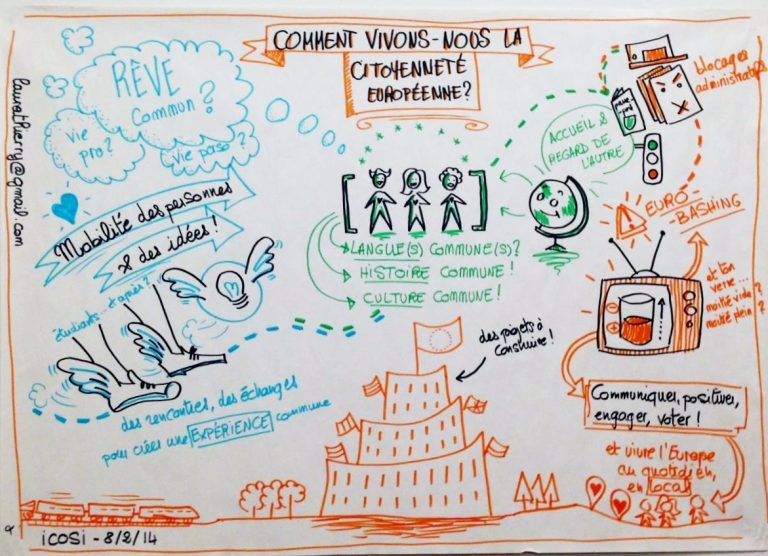 COMMENT VIVONS-NOUS LA
CITOYENNETÉ
EUROPÉENNE?
RÊVE
commun?
vie
pro?
vie perso?
Mobilité des personnes
& des idées!
étudiants... et après?
des rencontres, des échanges
pour créer une EXPÉRIENCE commune
LANGUE(S) COMMUNE(S)?
HISTOIRE COMMUNE!
CULTURE COMMUNE!
ACCUEIL &
REGARD DE
L'AUTRE
blocages
administratifs
EURO
-BASHING
et ton
verre...
moitié vide?
moitié plein?
des projets à
construire!
Communiquer, positiver,
engager, voter!
et vivre l'Europe
au quotidien,
en local
laurathierry@gmail.com
icosi - 8/2/14